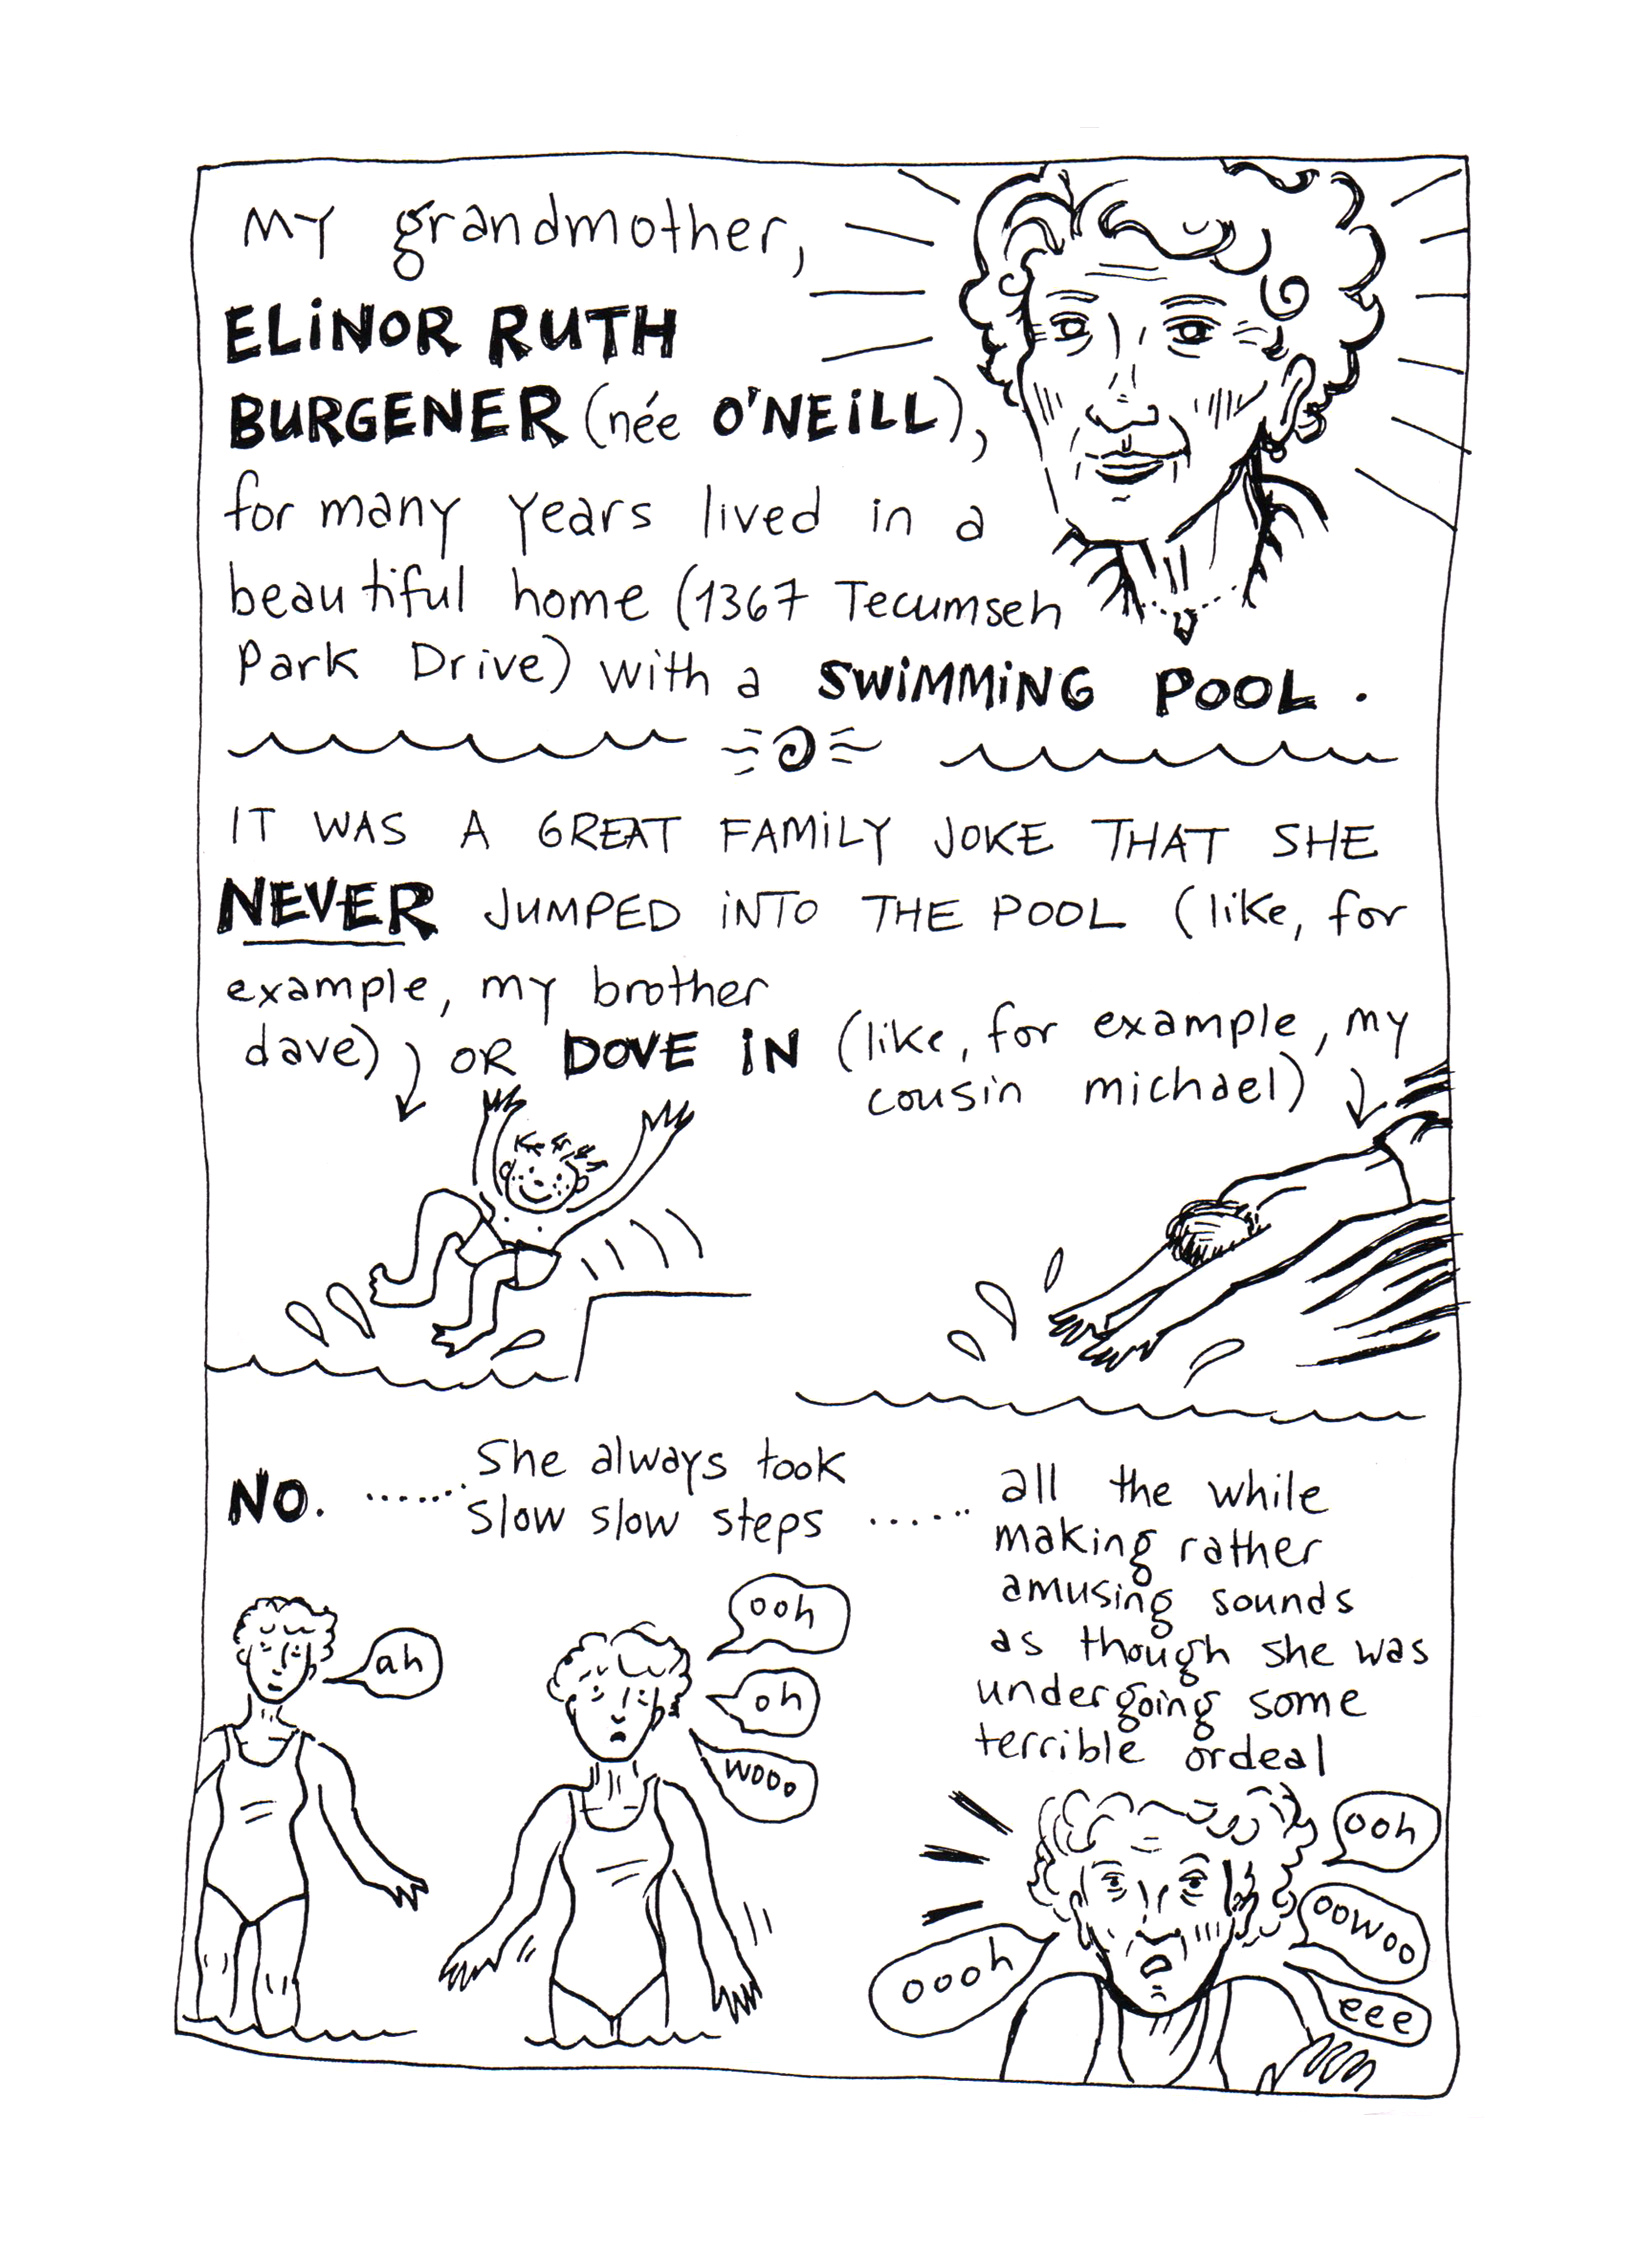 my grandmother,
ELINOR RUTH
BURGENER (née O'NEILL),
for many years lived in a
beautiful home (1367 Tecumseh
Park Drive) with a SWIMMING POOL.
IT WAS A GREAT FAMILY JOKE THAT SHE
NEVER JUMPED INTO THE POOL (like, for
example, my brother
dave) OR DOVE IN (like, for example, my
cousin michael)
NO. ....... She always took
slow slow steps ......
all the while
making rather
amusing sounds
as though she was
undergoing some
terrible ordeal
ah
ooh
oh
wooo
oooh
ooh
oowoo
eee